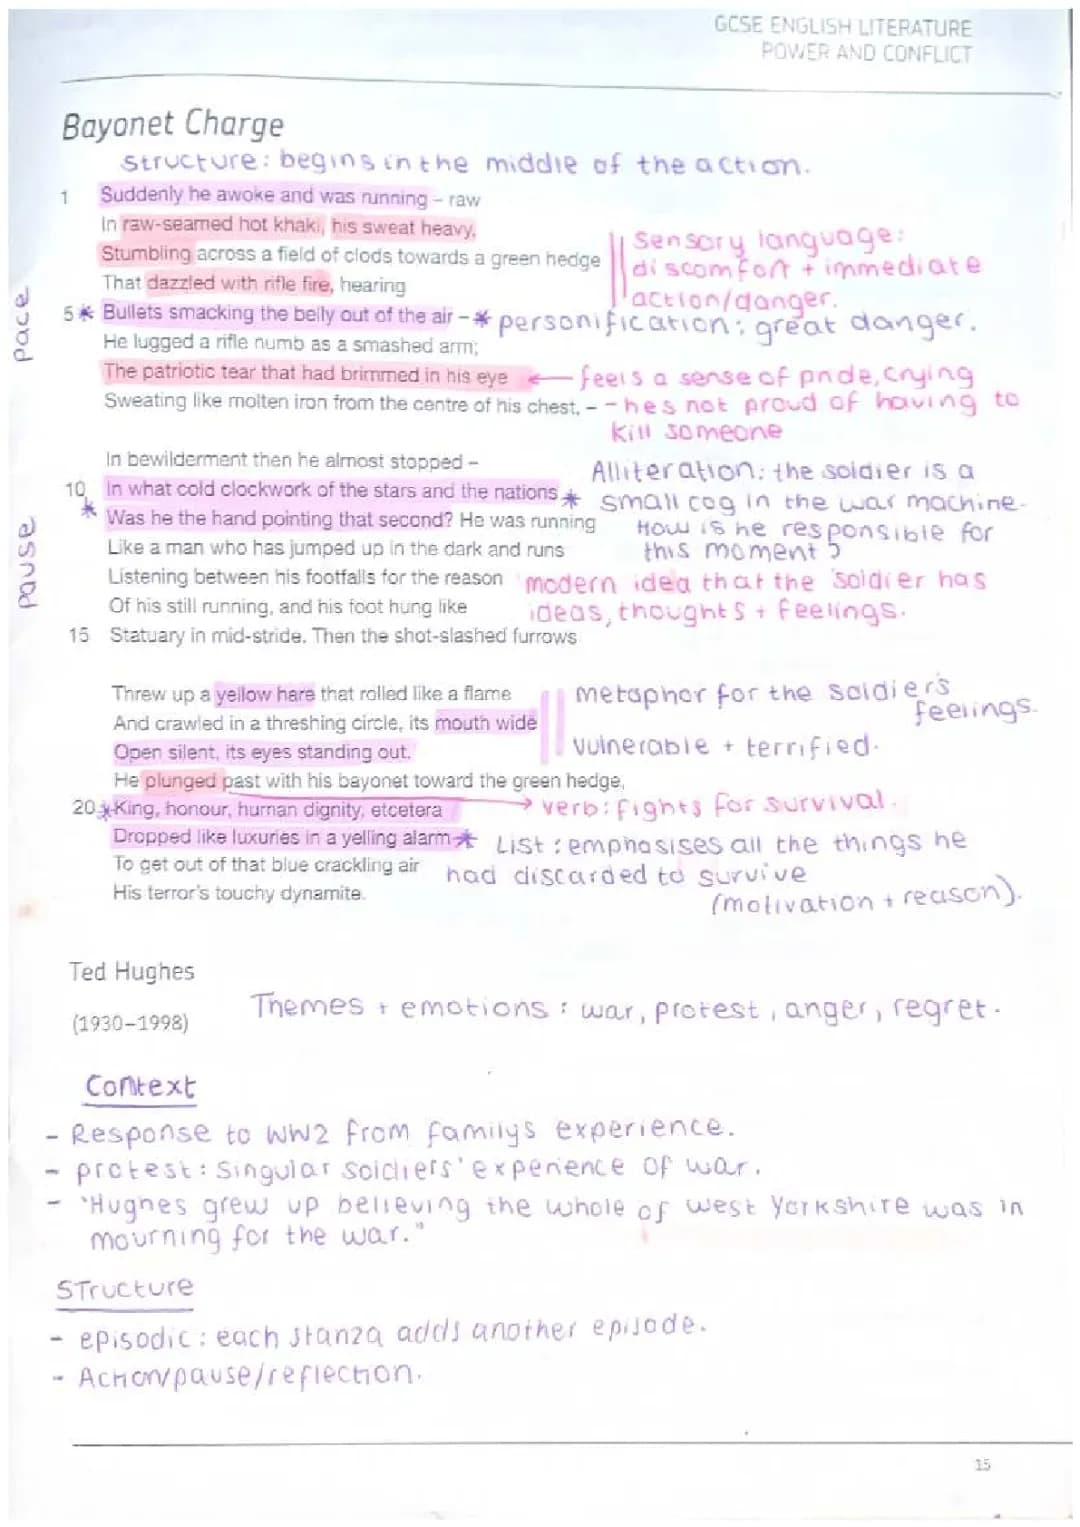 GCSE ENGLISH LITERATURE
POWER AND CONFLICT
Bayonet Charge
Structure: begins in the middle of the action.
1 Suddenly he awoke and was running – raw
In raw-seamed hot khaki, his sweat heavy,
Stumbling across a field of clods towards a green hedge
That dazzled with rifle fire, hearing
5 * Bullets smacking the belly out of the air – *
He lugged a rifle numb as a smashed arm;
The patriotic tear that had brimmed in his eye
Sweating like molten iron from the centre of his chest, –
Sensory language:
discomfort + immediate
action/danger.
personification: great danger.
← feels a sense of pride, crying
- hes not proud of having to
kill someone
pace
In bewilderment then he almost stopped –
10 In what cold clockwork of the stars and the nations *
* Was he the hand pointing that second? He was running
Like a man who has jumped up in the dark and runs
Listening between his footfalls for the reason
Of his still running, and his foot hung like
15 Statuary in mid-stride. Then the shot-slashed furrows
Alliteration: the soldier is a
small cog in the war machine.
How is he responsible for
this moment?
modern idea that the soldier has
ideas, thoughts + feelings.
pause
Threw up a yellow hare that rolled like a flame
And crawled in a threshing circle, its mouth wide
Open silent, its eyes standing out.
He plunged past with his bayonet toward the green hedge,
20 * King, honour, human dignity, etcetera
Dropped like luxuries in a yelling alarm *
To get out of that blue crackling air
His terror's touchy dynamite.
metaphor for the soldier's
feelings.
vulnerable + terrified.
→ verb: fights for survival.
List: emphasises all the things he
had discarded to survive
(motivation + reason).
Ted Hughes
(1930–1998)
Themes + emotions: war, protest, anger, regret.
Context
- Response to WW2 from familys experience.
- protest: Singular soldiers' experience of war.
- 'Hughes grew up believing the whole of west Yorkshire was in
mourning for the war."
Structure
- episodic: each stanza adds another episode.
- Action/pause/reflection.
15